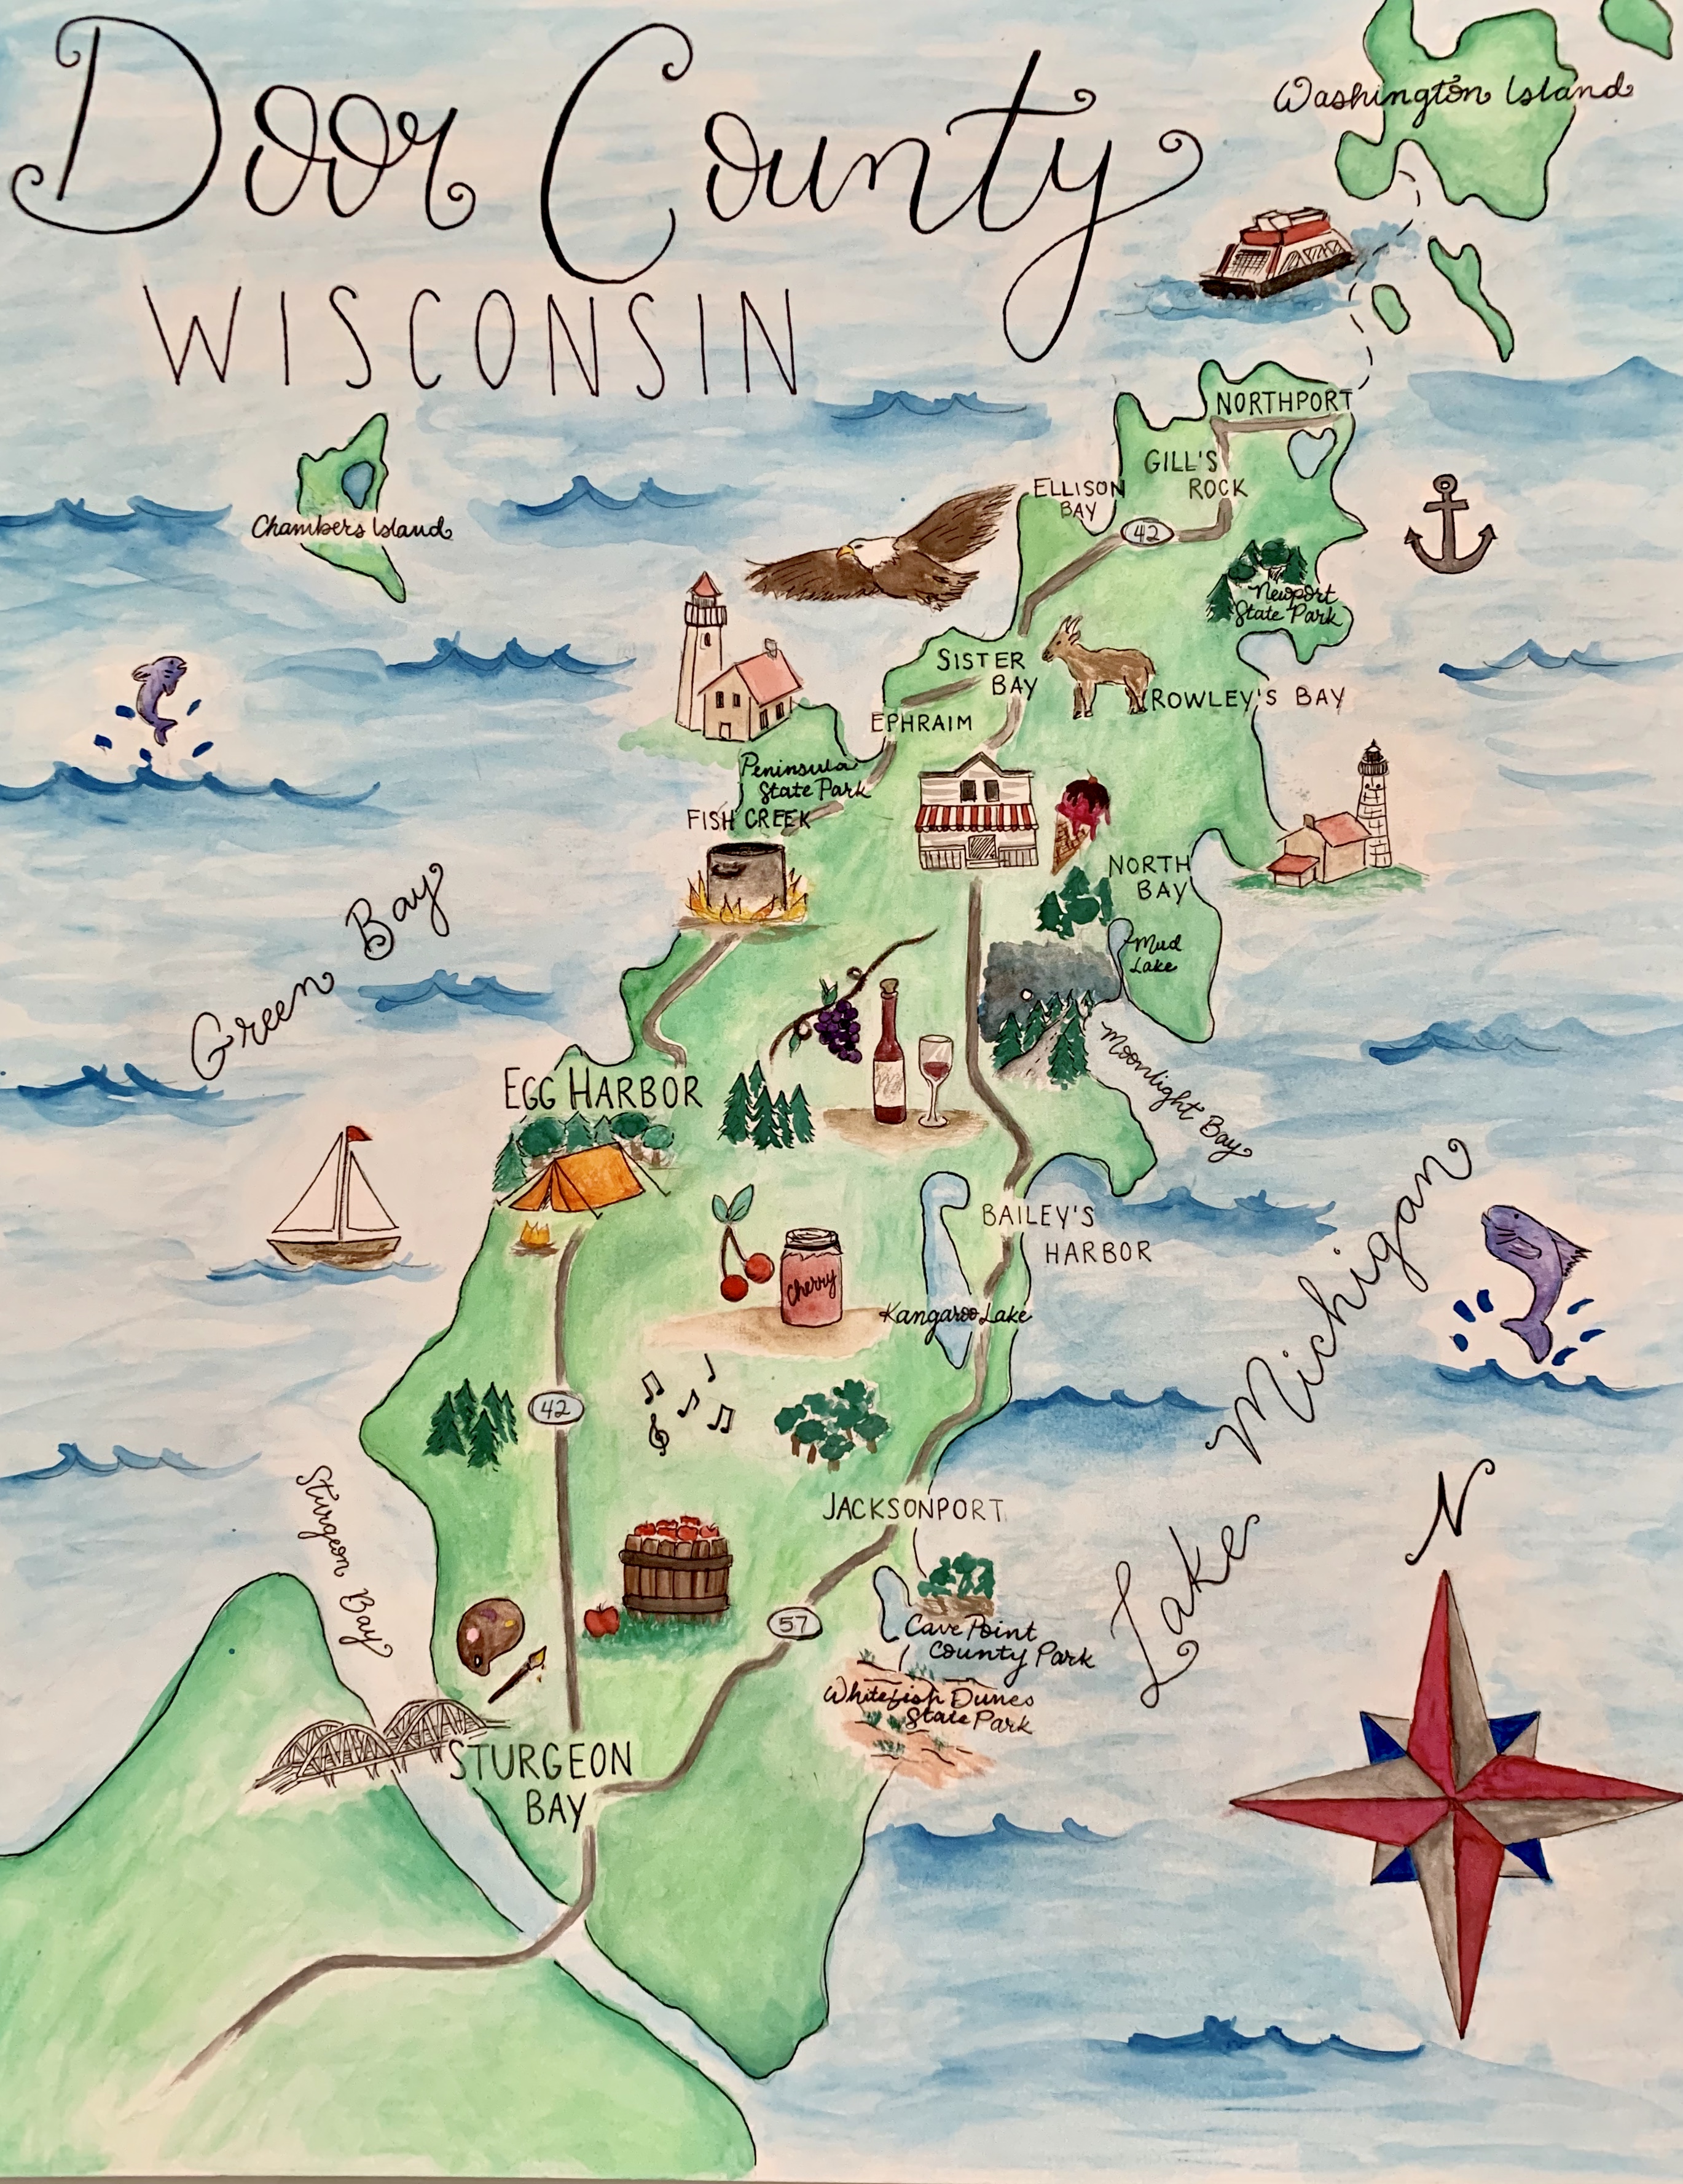 Door County
WISCONSIN
Washington Island
NORTHPORT
GILL'S
ROCK
ELLISON
BAY
42
Chambers Island
Newport
State Park
SISTER
BAY
ROWLEY'S BAY
EPHRAIM
Peninsula
State Park
FISH CREEK
NORTH
BAY
Mud
Lake
Green Bay
Moonlight Bay
EGG HARBOR
BAILEY'S
HARBOR
Cherry
Kangaroo Lake
Lake Michigan
42
Sturgeon Bay
JACKSONPORT
N
57
Cave Point
County Park
Whitefish Dunes
State Park
STURGEON
BAY